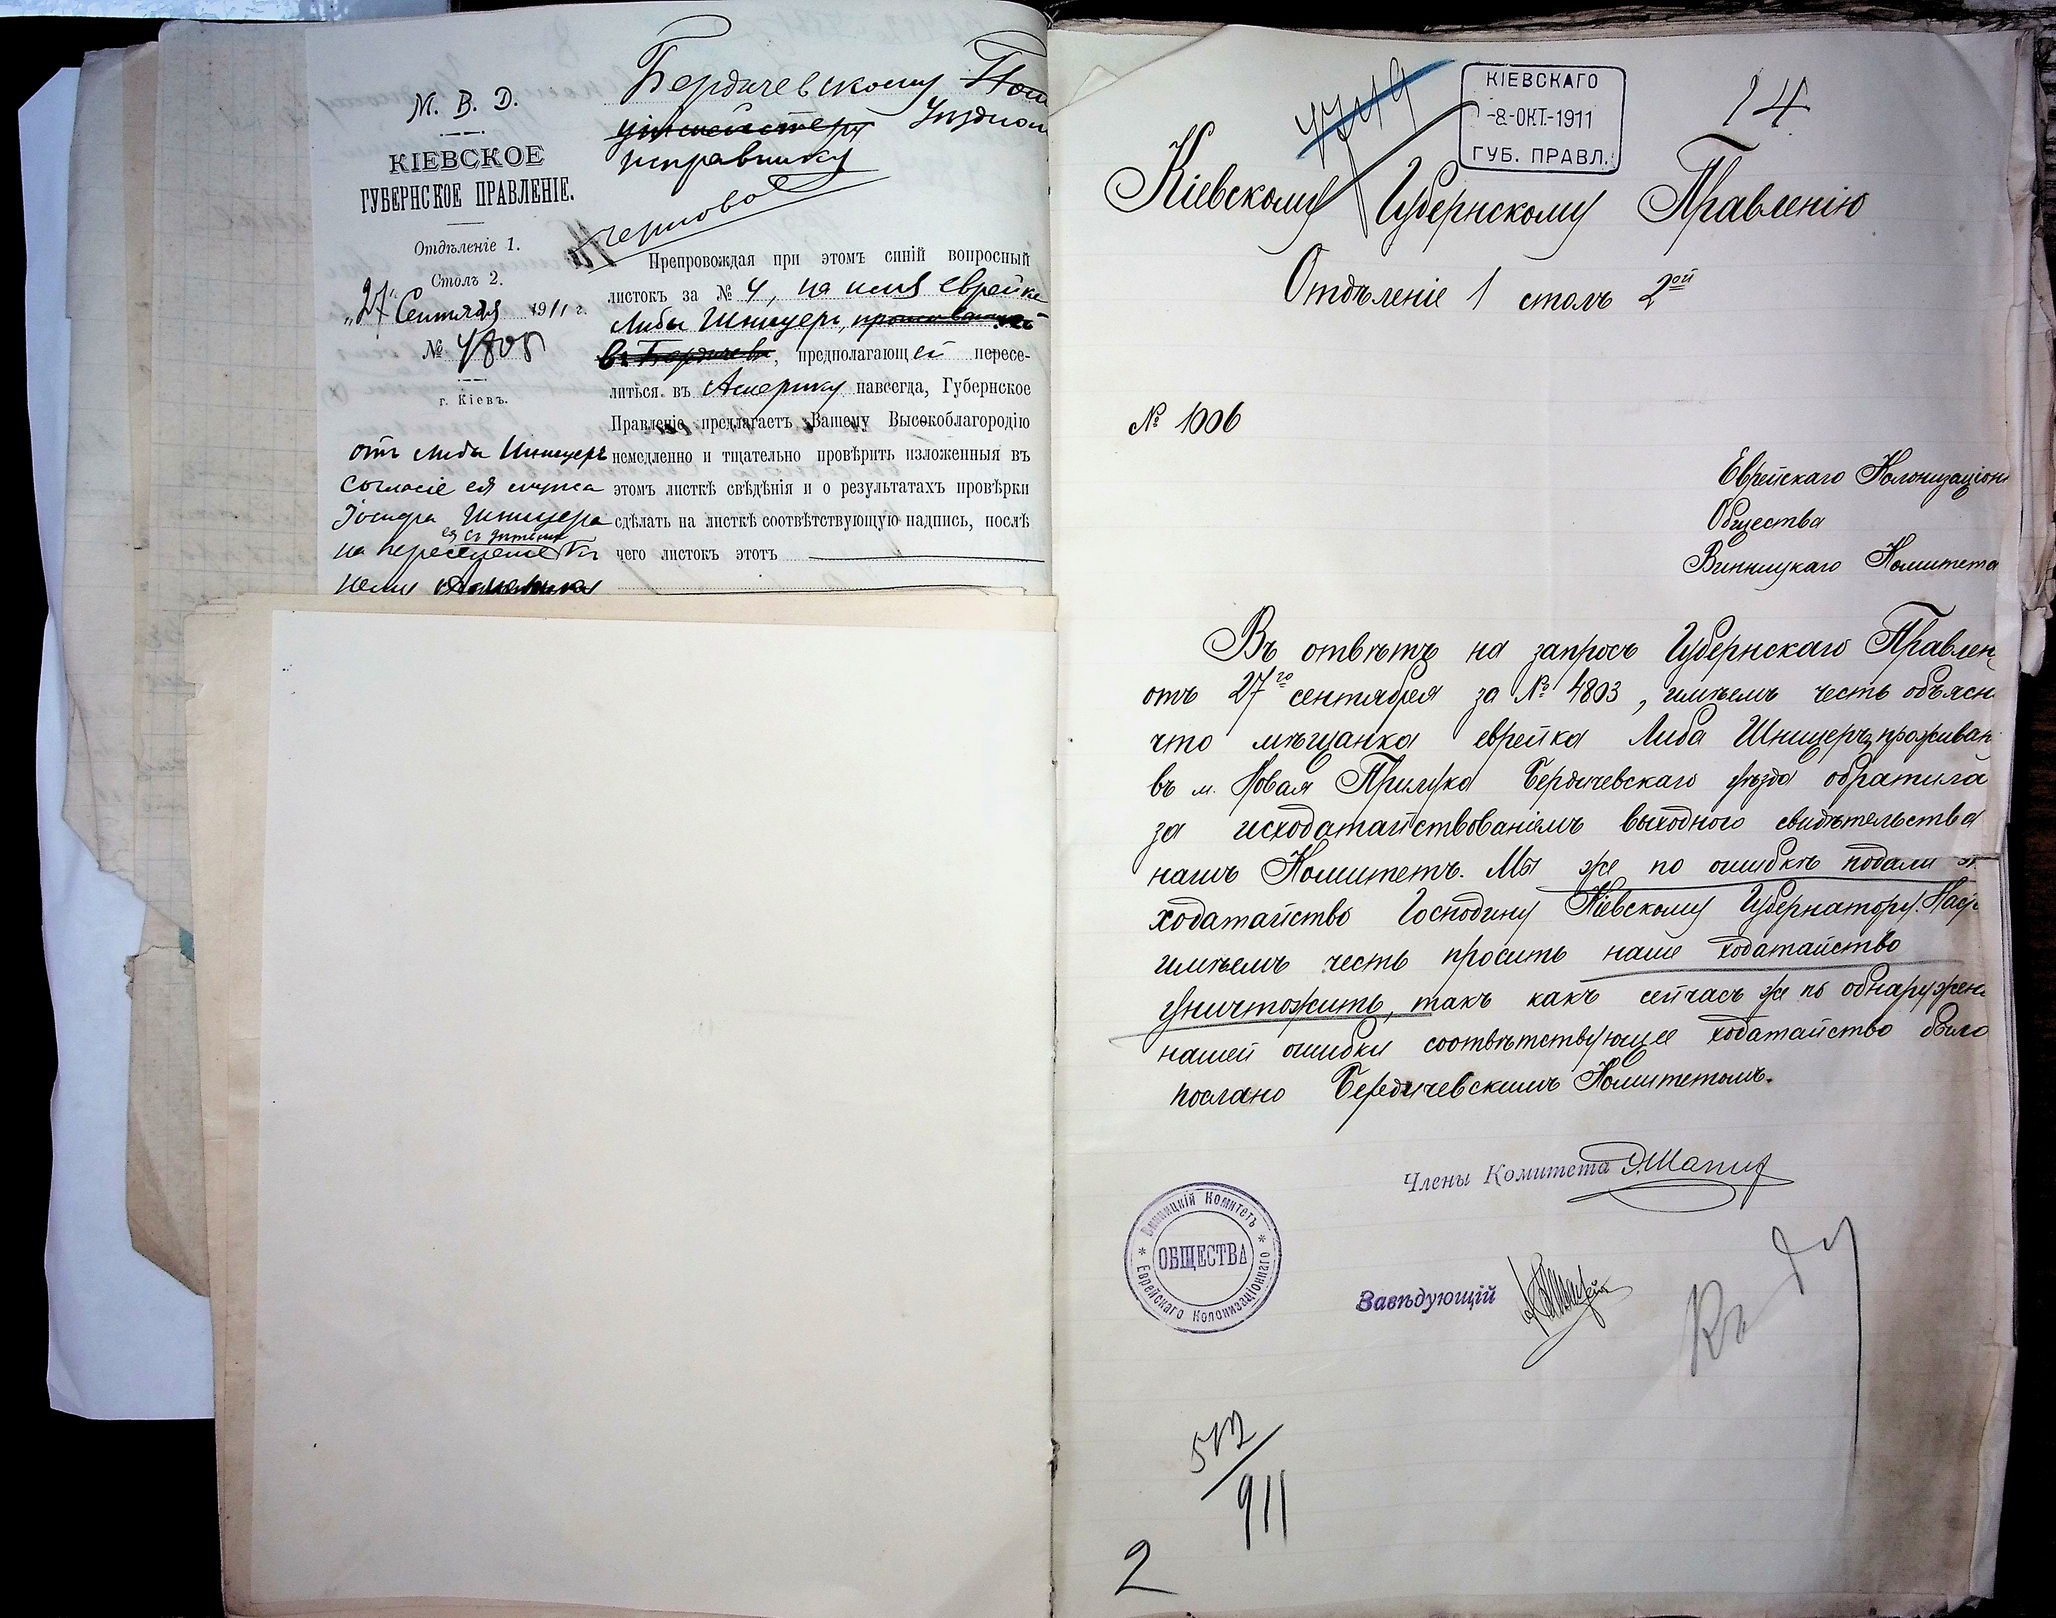 М. В. Д.
КІЕВСКОЕ
ГУБЕРНСКОЕ ПРАВЛЕНІЕ.
Отдѣленіе 1.
Столъ 2.
„27" Сентября 1911 г.
№ 4805
г. Кіевъ.
отъ Либы Шницеръ
согласіе ея мужа
Іосифа Шницера
ея съ дѣтьми
на переселеніе
Бердичевскому
Уѣздном
исправнику
Препровождая при этомъ синій вопросный
листокъ за № 4, на имя еврейки
Либы Шницеръ, проживающей
въ Бердичевѣ, предполагающей пересе-
литься въ Америку навсегда, Губернское
Правленіе предлагаетъ Вашему Высокоблагородію
немедленно и тщательно провѣрить изложенныя въ
этомъ листкѣ свѣдѣнія и о результатахъ провѣрки
сдѣлать на листкѣ соотвѣтствующую надпись, послѣ
чего листокъ этотъ
КІЕВСКАГО
-8-ОКТ.-1911
ГУБ. ПРАВЛ.
14
Кіевскому Губернскому Правленію
Отдѣленіе 1 столъ 2ой
№ 1006
Еврейскаго Колонизаціон
Общества
Винницкаго Комитета
Въ отвѣтъ на запросъ Губернскаго Правлен
отъ 27го сентября за № 4803, имѣемъ честь объясн
что мѣщанка еврейка Либа Шницеръ, проживаю
въ м. Новая Прилука Бердичевскаго уѣзда обратила
за исходатайствованіемъ выходного свидѣтельства
нашъ Комитетъ. Мы же по ошибкѣ подали
ходатайство Господину Кіевскому Губернатору. Наст
имѣемъ честь просить наше ходатайство
уничтожить, такъ какъ сейчасъ же по обнаружен
нашей ошибки соотвѣтствующее ходатайство было
послано Бердичевскимъ Комитетомъ.
Члены Комитета
Винницкій Комитетъ
ОБЩЕСТВА
Еврейскаго Колонизаціоннаго
Завѣдующій
Къ
512/911
2